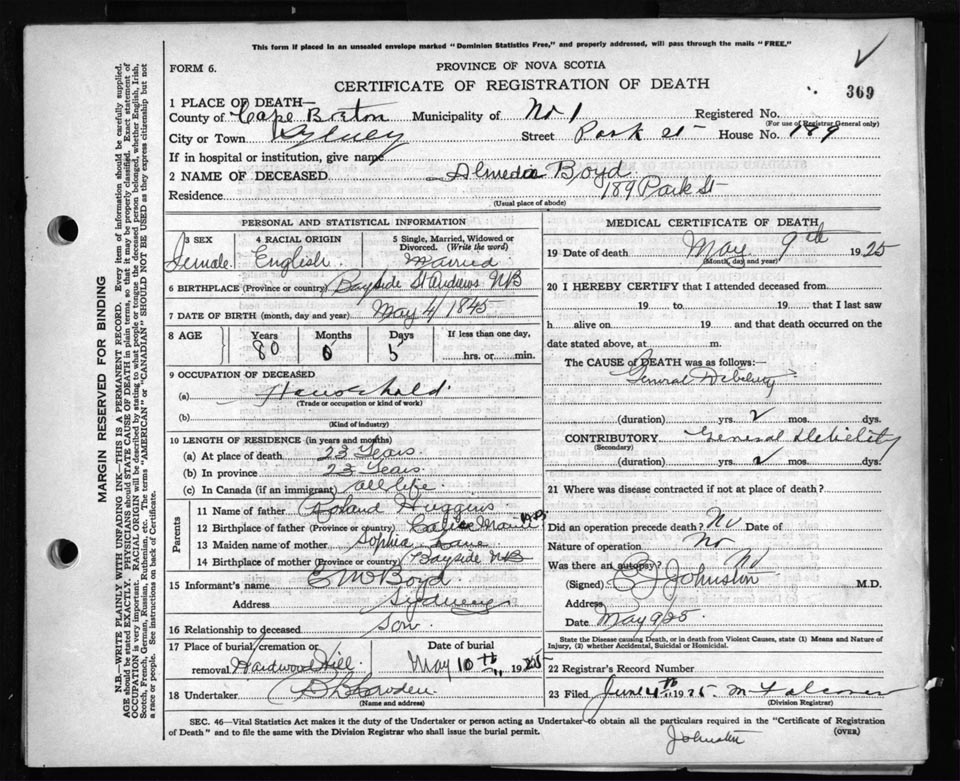 This form if placed in an unsealed envelope marked "Dominion Statistics Free," and properly addressed, will pass through the mails "FREE."
FORM 6.
PROVINCE OF NOVA SCOTIA
CERTIFICATE OF REGISTRATION OF DEATH
369
1 PLACE OF DEATH—
County of Cape Breton Municipality of No 1 Registered No.
(For use of Registrar General only)
City or Town Sydney Street Park St House No. 189
If in hospital or institution, give name
2 NAME OF DECEASED Almedia Boyd
Residence 189 Park St
(Usual place of abode)
PERSONAL AND STATISTICAL INFORMATION
3 SEX 4 RACIAL ORIGIN 5 Single, Married, Widowed or Divorced. (Write the word)
Female English Married
6 BIRTHPLACE (Province or country) Bayside St Andrews NB
7 DATE OF BIRTH (month, day and year) May 4/1845
8 AGE Years Months Days If less than one day,
80 0 5 hrs. or min.
9 OCCUPATION OF DECEASED
(a) Household
(Trade or occupation or kind of work)
(b)
(Kind of industry)
10 LENGTH OF RESIDENCE (in years and months)
(a) At place of death 23 Years
(b) In province 23 Years
(c) In Canada (if an immigrant) all life
Parents
11 Name of father Roland Huggins
12 Birthplace of father (Province or country) NB
13 Maiden name of mother Sophia Lane
14 Birthplace of mother (Province or country) Bayside NB
15 Informant's name E M Boyd
Address Sydney
16 Relationship to deceased Son
17 Place of burial, cremation or Date of burial
removal Hardwood Hill May 10th 1925
18 Undertaker
(Name and address)
MEDICAL CERTIFICATE OF DEATH
19 Date of death May 9th 1925
(Month, day and year)
20 I HEREBY CERTIFY that I attended deceased from
19 to 19 that I last saw
h alive on 19 and that death occurred on the
date stated above, at m.
The CAUSE OF DEATH was as follows:—
General Debility
(duration) yrs. 2 mos. dys.
CONTRIBUTORY General Debility
(Secondary)
(duration) yrs. 2 mos. dys.
21 Where was disease contracted if not at place of death?
Did an operation precede death? No Date of
Nature of operation No
Was there an autopsy? No
(Signed) Johnston M.D.
Address
Date May 9/25
State the Disease causing Death, or in death from Violent Causes, state (1) Means and Nature of Injury, (2) whether Accidental, Suicidal or Homicidal.
22 Registrar's Record Number
23 Filed June 4th 1925 M Falconer
(Division Registrar)
SEC. 46—Vital Statistics Act makes it the duty of the Undertaker or person acting as Undertaker to obtain all the particulars required in the "Certificate of Registration
of Death" and to file the same with the Division Registrar who shall issue the burial permit.
(OVER)
Johnston
MARGIN RESERVED FOR BINDING
N.B.—WRITE PLAINLY, WITH UNFADING INK—THIS IS A PERMANENT RECORD. Every item of information should be carefully supplied.
AGE should be stated EXACTLY. PHYSICIANS should STATE CAUSE OF DEATH in plain terms, so that it may be properly classified. Exact statement of
OCCUPATION is very important. RACIAL ORIGIN will be described by stating to what people or tongue the deceased person belonged, whether English, Irish,
Scotch, French, German, Russian, Ruthenian, etc. The terms "AMERICAN" or "CANADIAN" SHOULD NOT BE USED as they express citizenship but not
a race or people. See instructions on back of Certificate.